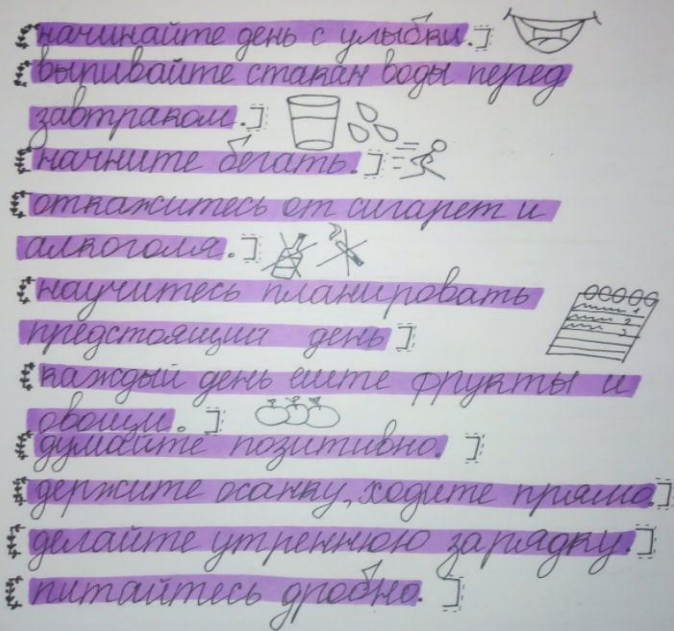 начинайте день с улыбки.
выпивайте стакан воды перед
завтраком.
начните бегать.
откажитесь от сигарет и
алкоголя.
научитесь планировать
1
2
3
предстоящий день
каждый день ешьте фрукты и
овощи.
думайте позитивно.
держите осанку, ходите прямо.
делайте утреннюю зарядку.
питайтесь дробно.